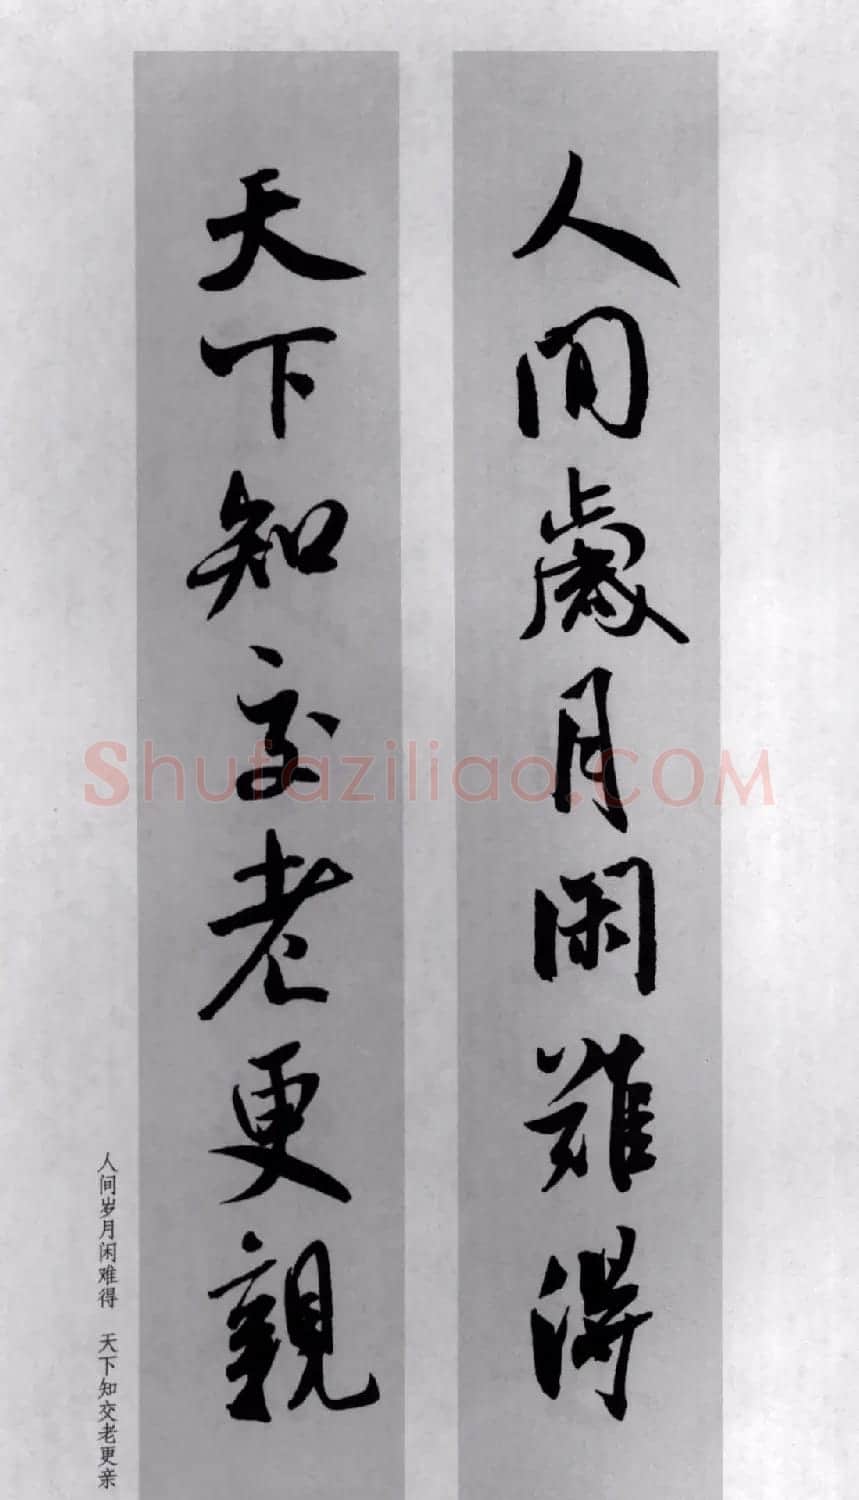 人間歲月閑難得
天下知交老更親
人间岁月闲难得 天下知交老更亲
Shufaziliao.COM